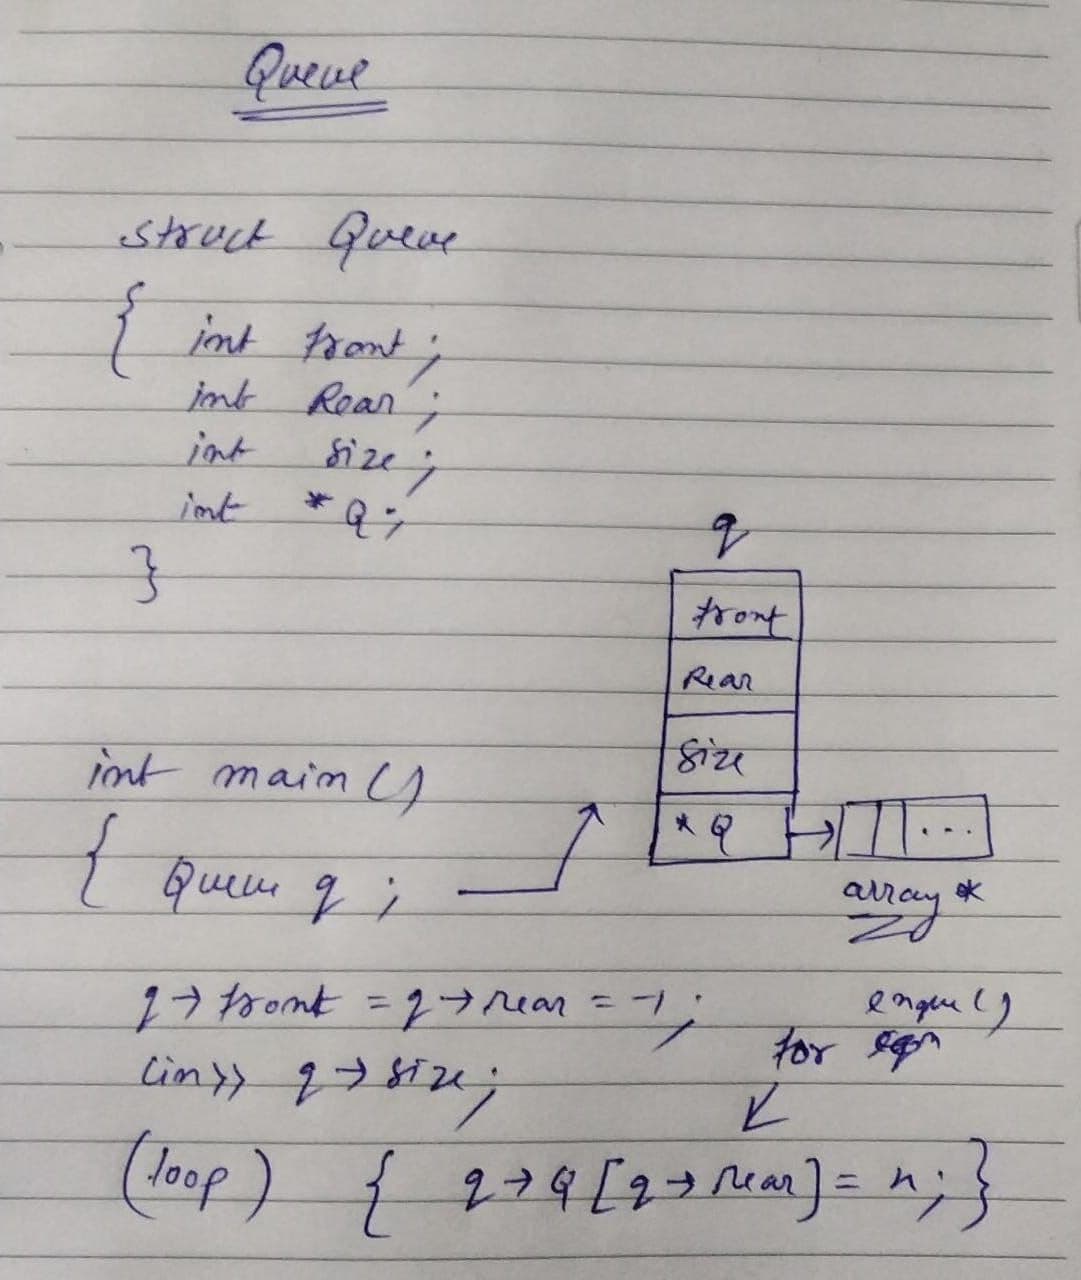 Queue
struct Queue
{ int front;
int Rear;
int size;
int *Q;
}
q
front
Rear
size
*Q
...
array *
int main()
{ Queue q;
q→front = q→rear = -1;
cin>> q→size;
enque()
for
(loop) { q→Q[q→rear] = n; }